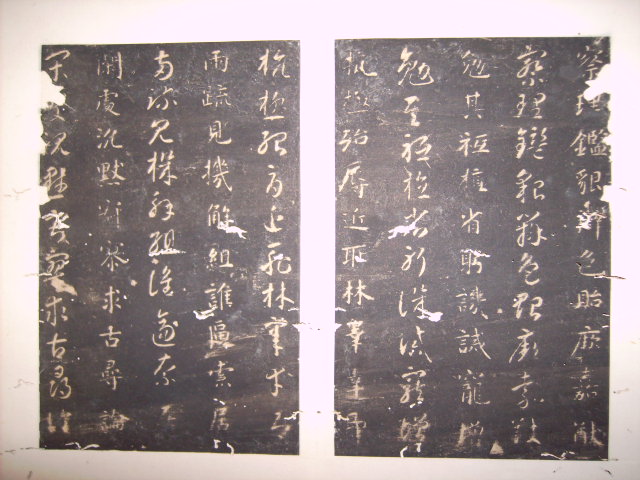 察理鑑貌辨色貽厥嘉猷
察理鑑貌辨色貽厥嘉猷
勉其祗植省躬譏誡寵增
勉其祗植省躬譏誡寵增
抗極殆辱近耻林皋幸即
抗極殆辱近耻林皋幸即
兩疏見機解組誰逼索居
兩疏見機解組誰逼索居
閑處沉默寂寥求古尋論
閑處沉默寂寥求古尋論